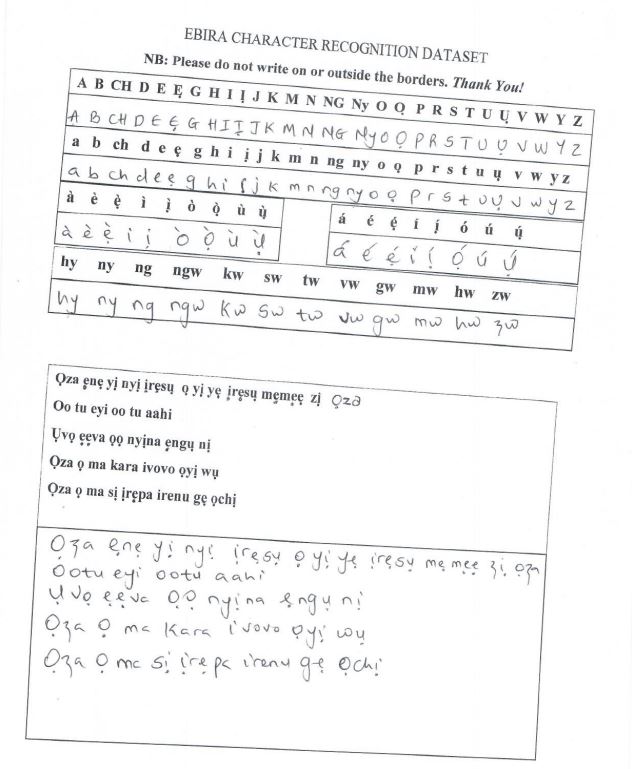 EBIRA CHARACTER RECOGNITION DATASET
NB: Please do not write on or outside the borders. Thank You!
A B CH D E Ẹ G H I Ị J K M N NG Ny O Ọ P R S T U Ụ V W Y Z
A B CH D E Ẹ G H I Ị J K M N NG Ny O Ọ P R S T U Ụ V W Y Z
a b ch d e ẹ g h i ị j k m n ng ny o ọ p r s t u ụ v w y z
a b ch d e ẹ g h i ị j k m n ng ny o ọ p r s t u ụ v w y z
à è ẹ̀ ì ị̀ ò ọ̀ ù ụ̀
à è ẹ̀ ì ị̀ ò ọ̀ ù ụ̀
á é ẹ́ í ị́ ó ú ụ́
á é ẹ́ í ị́ ọ́ ú ụ́
hy ny ng ngw kw sw tw vw gw mw hw zw
hy ny ng ngw kw sw tw vw gw mw hw zw
Ọza ẹnẹ yị nyị ịrẹsụ ọ yị yẹ ịrẹsụ mẹmẹẹ zị ọza
Oo tu eyi oo tu aahi
Ụvọ ẹẹva ọọ nyịna ẹngụ nị
Ọza ọ ma kara ivovo ọyị wụ
Ọza ọ ma sị ịrẹpa irenu gẹ ọchị
Ọza ẹnẹ yị nyị ịrẹsụ ọ yị yẹ ịrẹsụ mẹ mẹẹ zị ọza
Ootu eyi ootu aahi
Ụvọ ẹẹva ọọ nyịna ẹngụ nị
Ọza ọ ma kara ivovo ọyị wụ
Ọza ọ ma sị ịrẹpa irenu gẹ ọchị